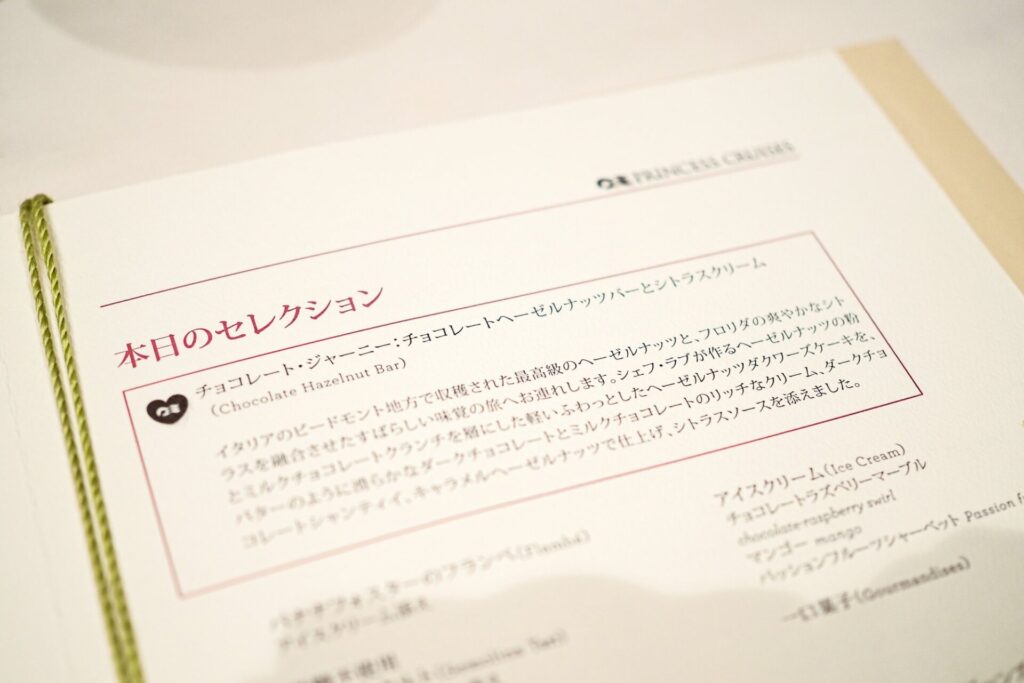 PRINCESS CRUISES
本日のセレクション
チョコレート・ジャーニー：チョコレートヘーゼルナッツバーとシトラスクリーム
(Chocolate Hazelnut Bar)
イタリアのピードモント地方で収穫された最高級のヘーゼルナッツと、フロリダの爽やかなシト
ラスを融合させたすばらしい味覚の旅へお連れします。シェフ・ラブが作るヘーゼルナッツの粉
とミルクチョコレートクランチを層にした軽いふわっとしたヘーゼルナッツダクワーズケーキを、
バターのように滑らかなダークチョコレートとミルクチョコレートのリッチなクリーム、ダークチョ
コレートシャンティイ、キャラメルヘーゼルナッツで仕上げ、シトラスソースを添えました。
バナナフォスターのフランベ(Flambé)
アイスクリーム添え
アイスクリーム(Ice Cream)
チョコレートラズベリーマーブル
chocolate-raspberry swirl
マンゴー mango
パッションフルーツシャーベット Passion
一口菓子(Gourmandises)